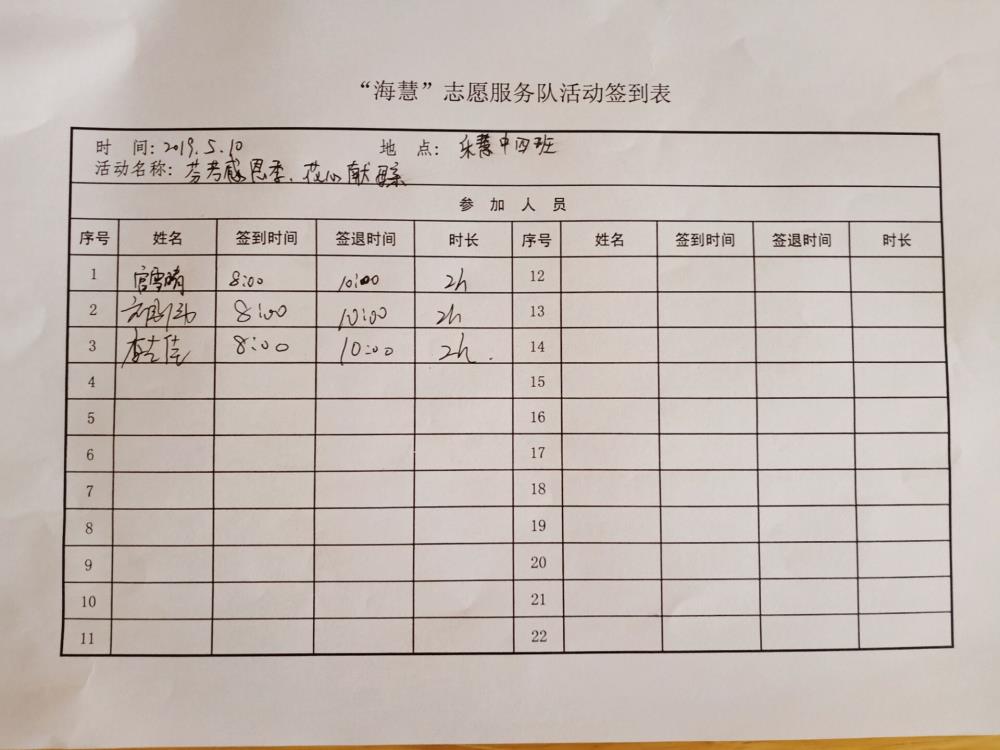 “海慧”志愿服务队活动签到表
时 间: 2019.5.10 地 点: 乐慧中四班
活动名称: 芬芳感恩季、花心献母亲
参 加 人 员
序号 姓名 签到时间 签退时间 时长 序号 姓名 签到时间 签退时间 时长
1 宫雪晴 8:00 10:00 2h 12
2 8:00 10:00 2h 13
3 8:00 10:00 2h. 14
4 15
5 16
6 17
7 18
8 19
9 20
10 21
11 22